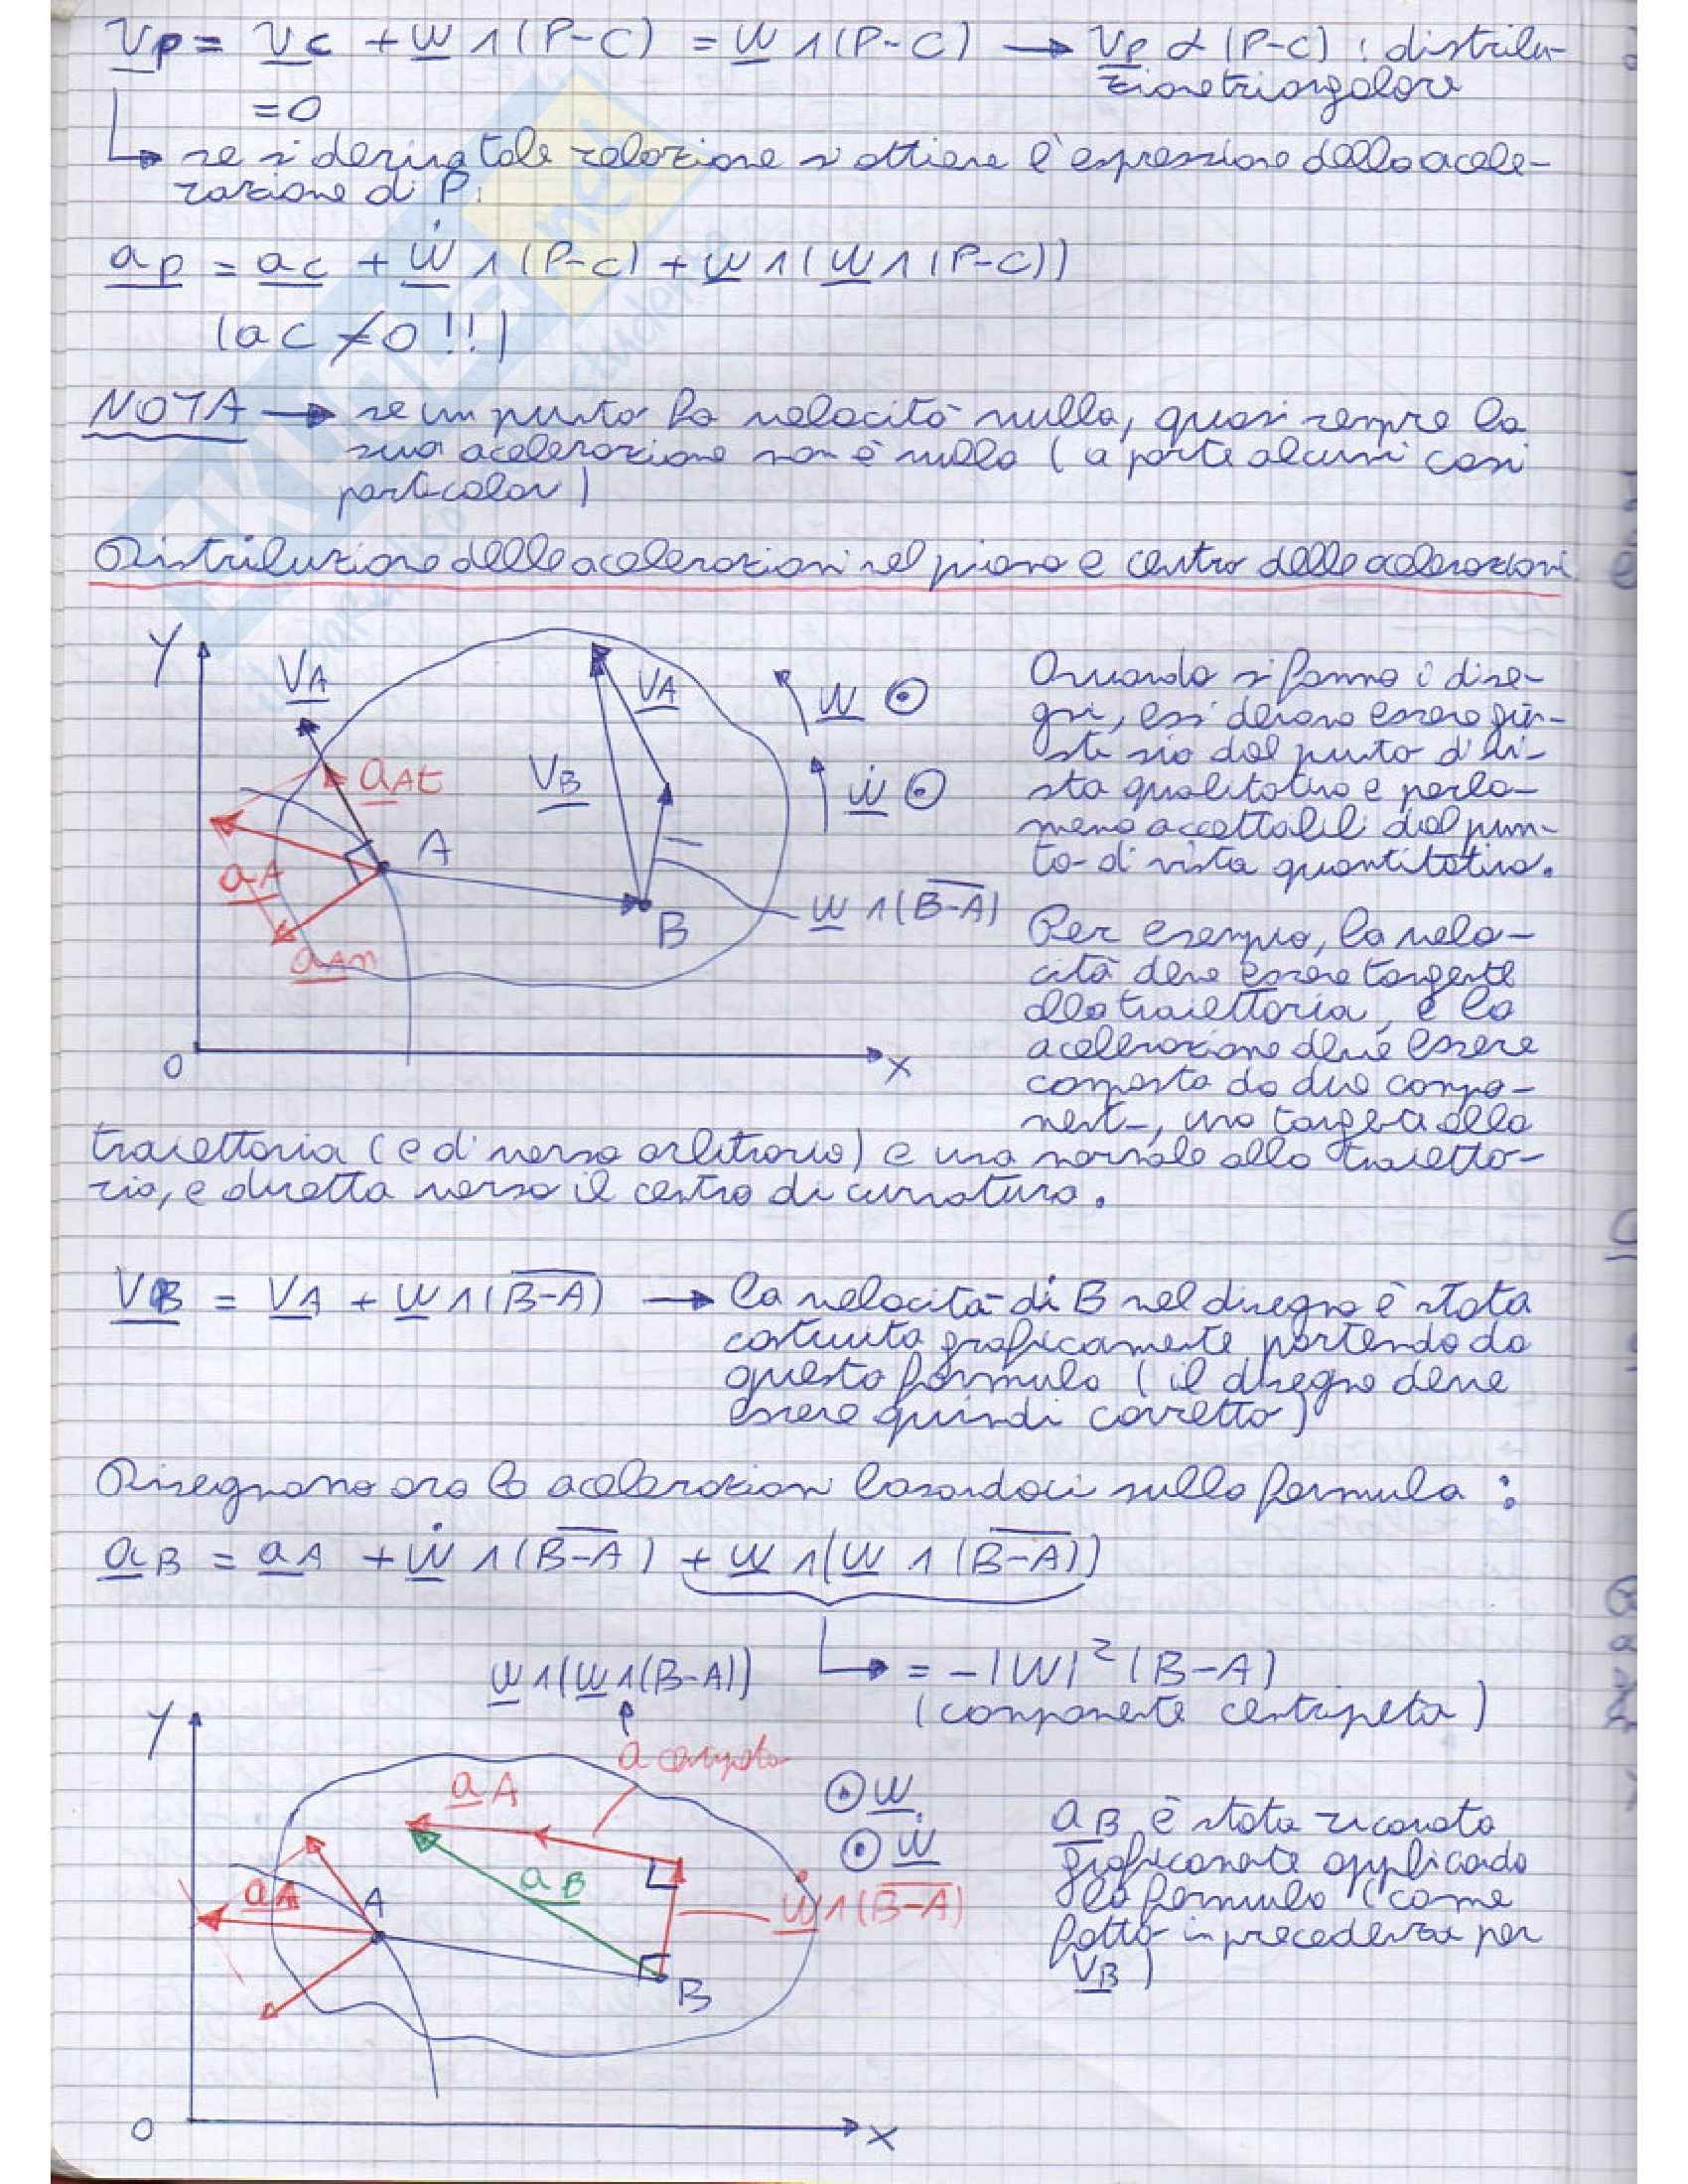 Vp = Vc + w ∧ (P-C) = w ∧ (P-C) → Vp ∝ (P-C) : distribu-
zione triangolare
=0
↳ se si deriva tale relazione si ottiene l'espressione della acele-
razione di P:
ap = ac + ẇ ∧ (P-C) + w ∧ (w ∧ (P-C))
(ac ≠ 0 !!)
NOTA → se un punto ha velocità nulla, quasi sempre la
sua acelerazione non è nulla (a parte alcuni casi
particolari)
Distribuzione delle acelerazioni nel piano e centro delle acelerazioni
Y
VA
aAt
aA
aAn
A
VB
VA
B
w ⊙
ẇ ⊙
w ∧ (B-A)
O
X
Quando si fanno i dise-
gni, essi devono essere giu-
sti sia dal punto di vi-
sta qualitativo e perlo-
meno accettabili dal pun-
to di vista quantitativo.
Per esempio, la velo-
cità deve essere tangente
alla traiettoria, e la
acelerazione deve essere
composta da due compo-
nenti, una tangente alla
traiettoria (e di verso arbitrario) e una normale alla traietto-
ria, e diretta verso il centro di curvatura.
VB = VA + w ∧ (B-A) → la velocità di B nel disegno è stata
costruita graficamente partendo da
questa formula (il disegno deve
essere quindi corretto)
Disegnamo ora le acelerazioni basandoci sulla formula :
aB = aA + ẇ ∧ (B-A) + w ∧ (w ∧ (B-A))
↳ = -|w|² (B-A)
(componente centripeta)
w ∧ (w ∧ (B-A))
Y
aA
aA
A
aB
B
⊙ w
⊙ ẇ
w ∧ (B-A)
O
X
aB è stata ricavata
graficamente applicando
la formula (come
fatto in precedenza per
VB)